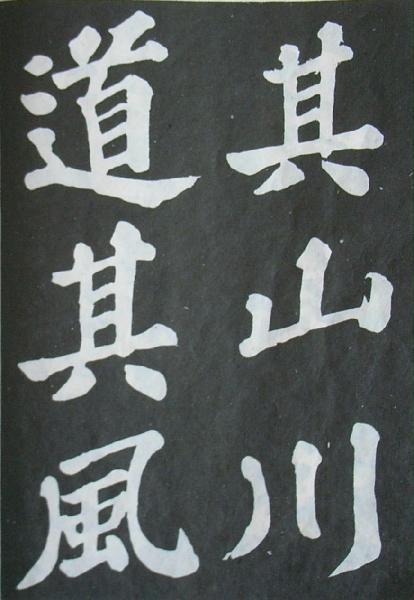 其山川
道其風